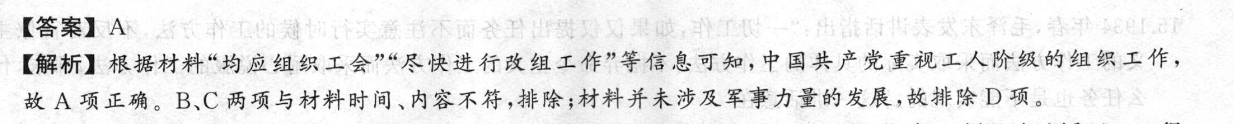 【答案】A
【解析】根据材料“均应组织工会”“尽快进行改组工作”等信息可知,中国共产党重视工人阶级的组织工作,
故A项正确。B、C两项与材料时间、内容不符,排除;材料并未涉及军事力量的发展,故排除D项。